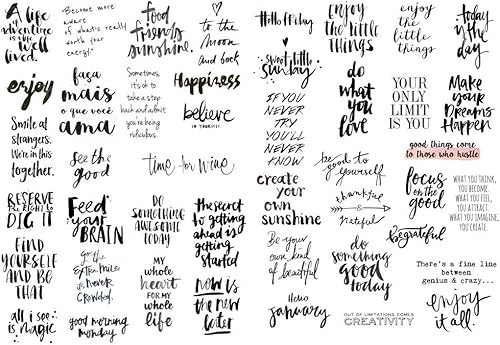 A life
adventure is a life
well
lived.
Become more
aware of
what's really
worth your
energy.
food
friends
sunshine.
to
the Moon
and back
enjoy
faça
mais
o que você
ama
Sometimes,
it's ok to
take a step
back and admit
you're being
ridiculous.
Happiness
believe
IN YOURSELF
Smile at
strangers.
We're in this
together.
see the
good
time for wine
RESERVE
THE RIGHT TO
DIG IT
Feed
your
BRAIN
DO
SOMETHING
AWESOME
TODAY
The secret
to getting
ahead is
getting
started
FIND
YOURSELF
AND BE
THAT
go the
extra mile
it's never
crowded.
MY
whole
HEART
FOR MY
whole
life
now is
the new
later
all i see
is magic
good morning
monday
Hello Friday
sweet little
sunday
ENJOY
THE LITTLE
THINGS
enjoy
the
little
things
today
is the
day
IF YOU
NEVER
TRY
YOU'LL
NEVER
KNOW
do
what
you
love
YOUR
ONLY
LIMIT
IS YOU
Make
your
DREAMS
Happen
good things come
to those who hustle
be good to
yourself
create
your own
sunshine
thankful
&
grateful
focus
on the
good
WHAT YOU THINK,
YOU BECOME.
WHAT YOU FEEL,
YOU ATTRACT.
WHAT YOU IMAGINE,
YOU CREATE.
Be grateful
Be your
own kind
of beautiful
do
something
good
today
There's a fine line
between
genius & crazy...
Hello
january
OUT OF LIMITATIONS COMES
CREATIVITY
enjoy
it all.